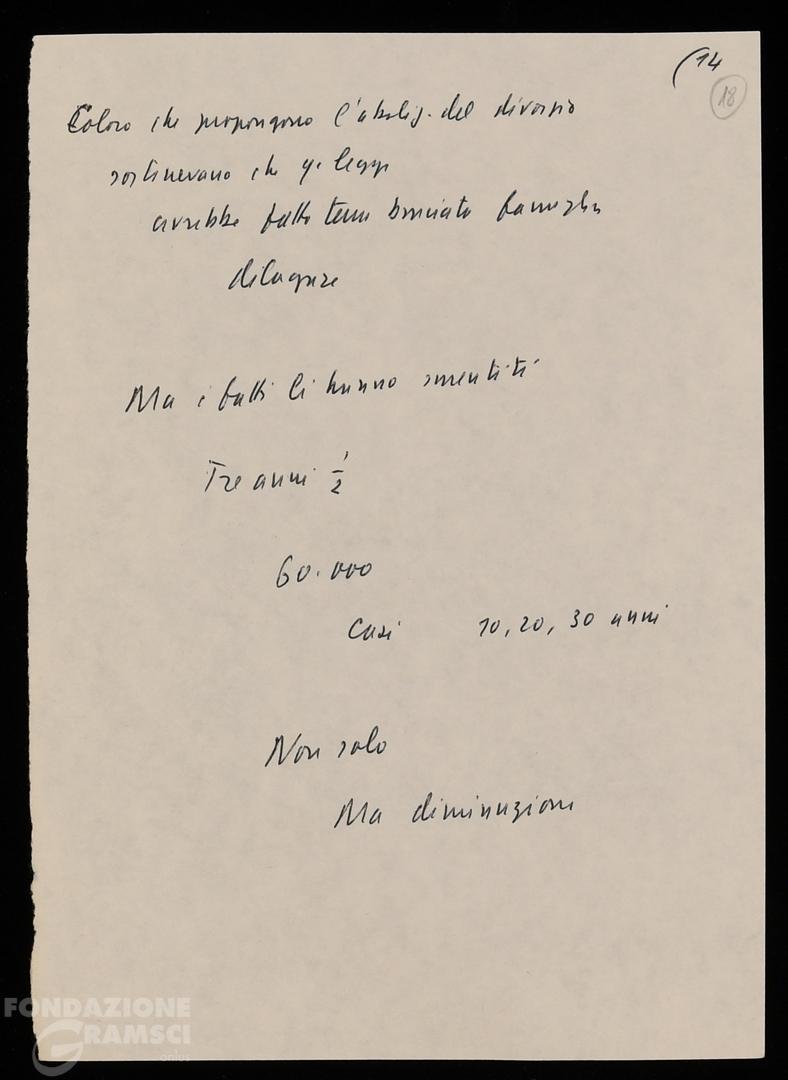 (14
18
Coloro che propongono l'aboliz. del divorzio
sostenevano che q. legge
avrebbe fatto terra bruciata famiglia
dilagare
Ma i fatti li hanno smentiti
Tre anni 1/2
60.000
Casi 10, 20, 30 anni
Non solo
Ma diminuzione
FONDAZIONE
GRAMSCI
onlus